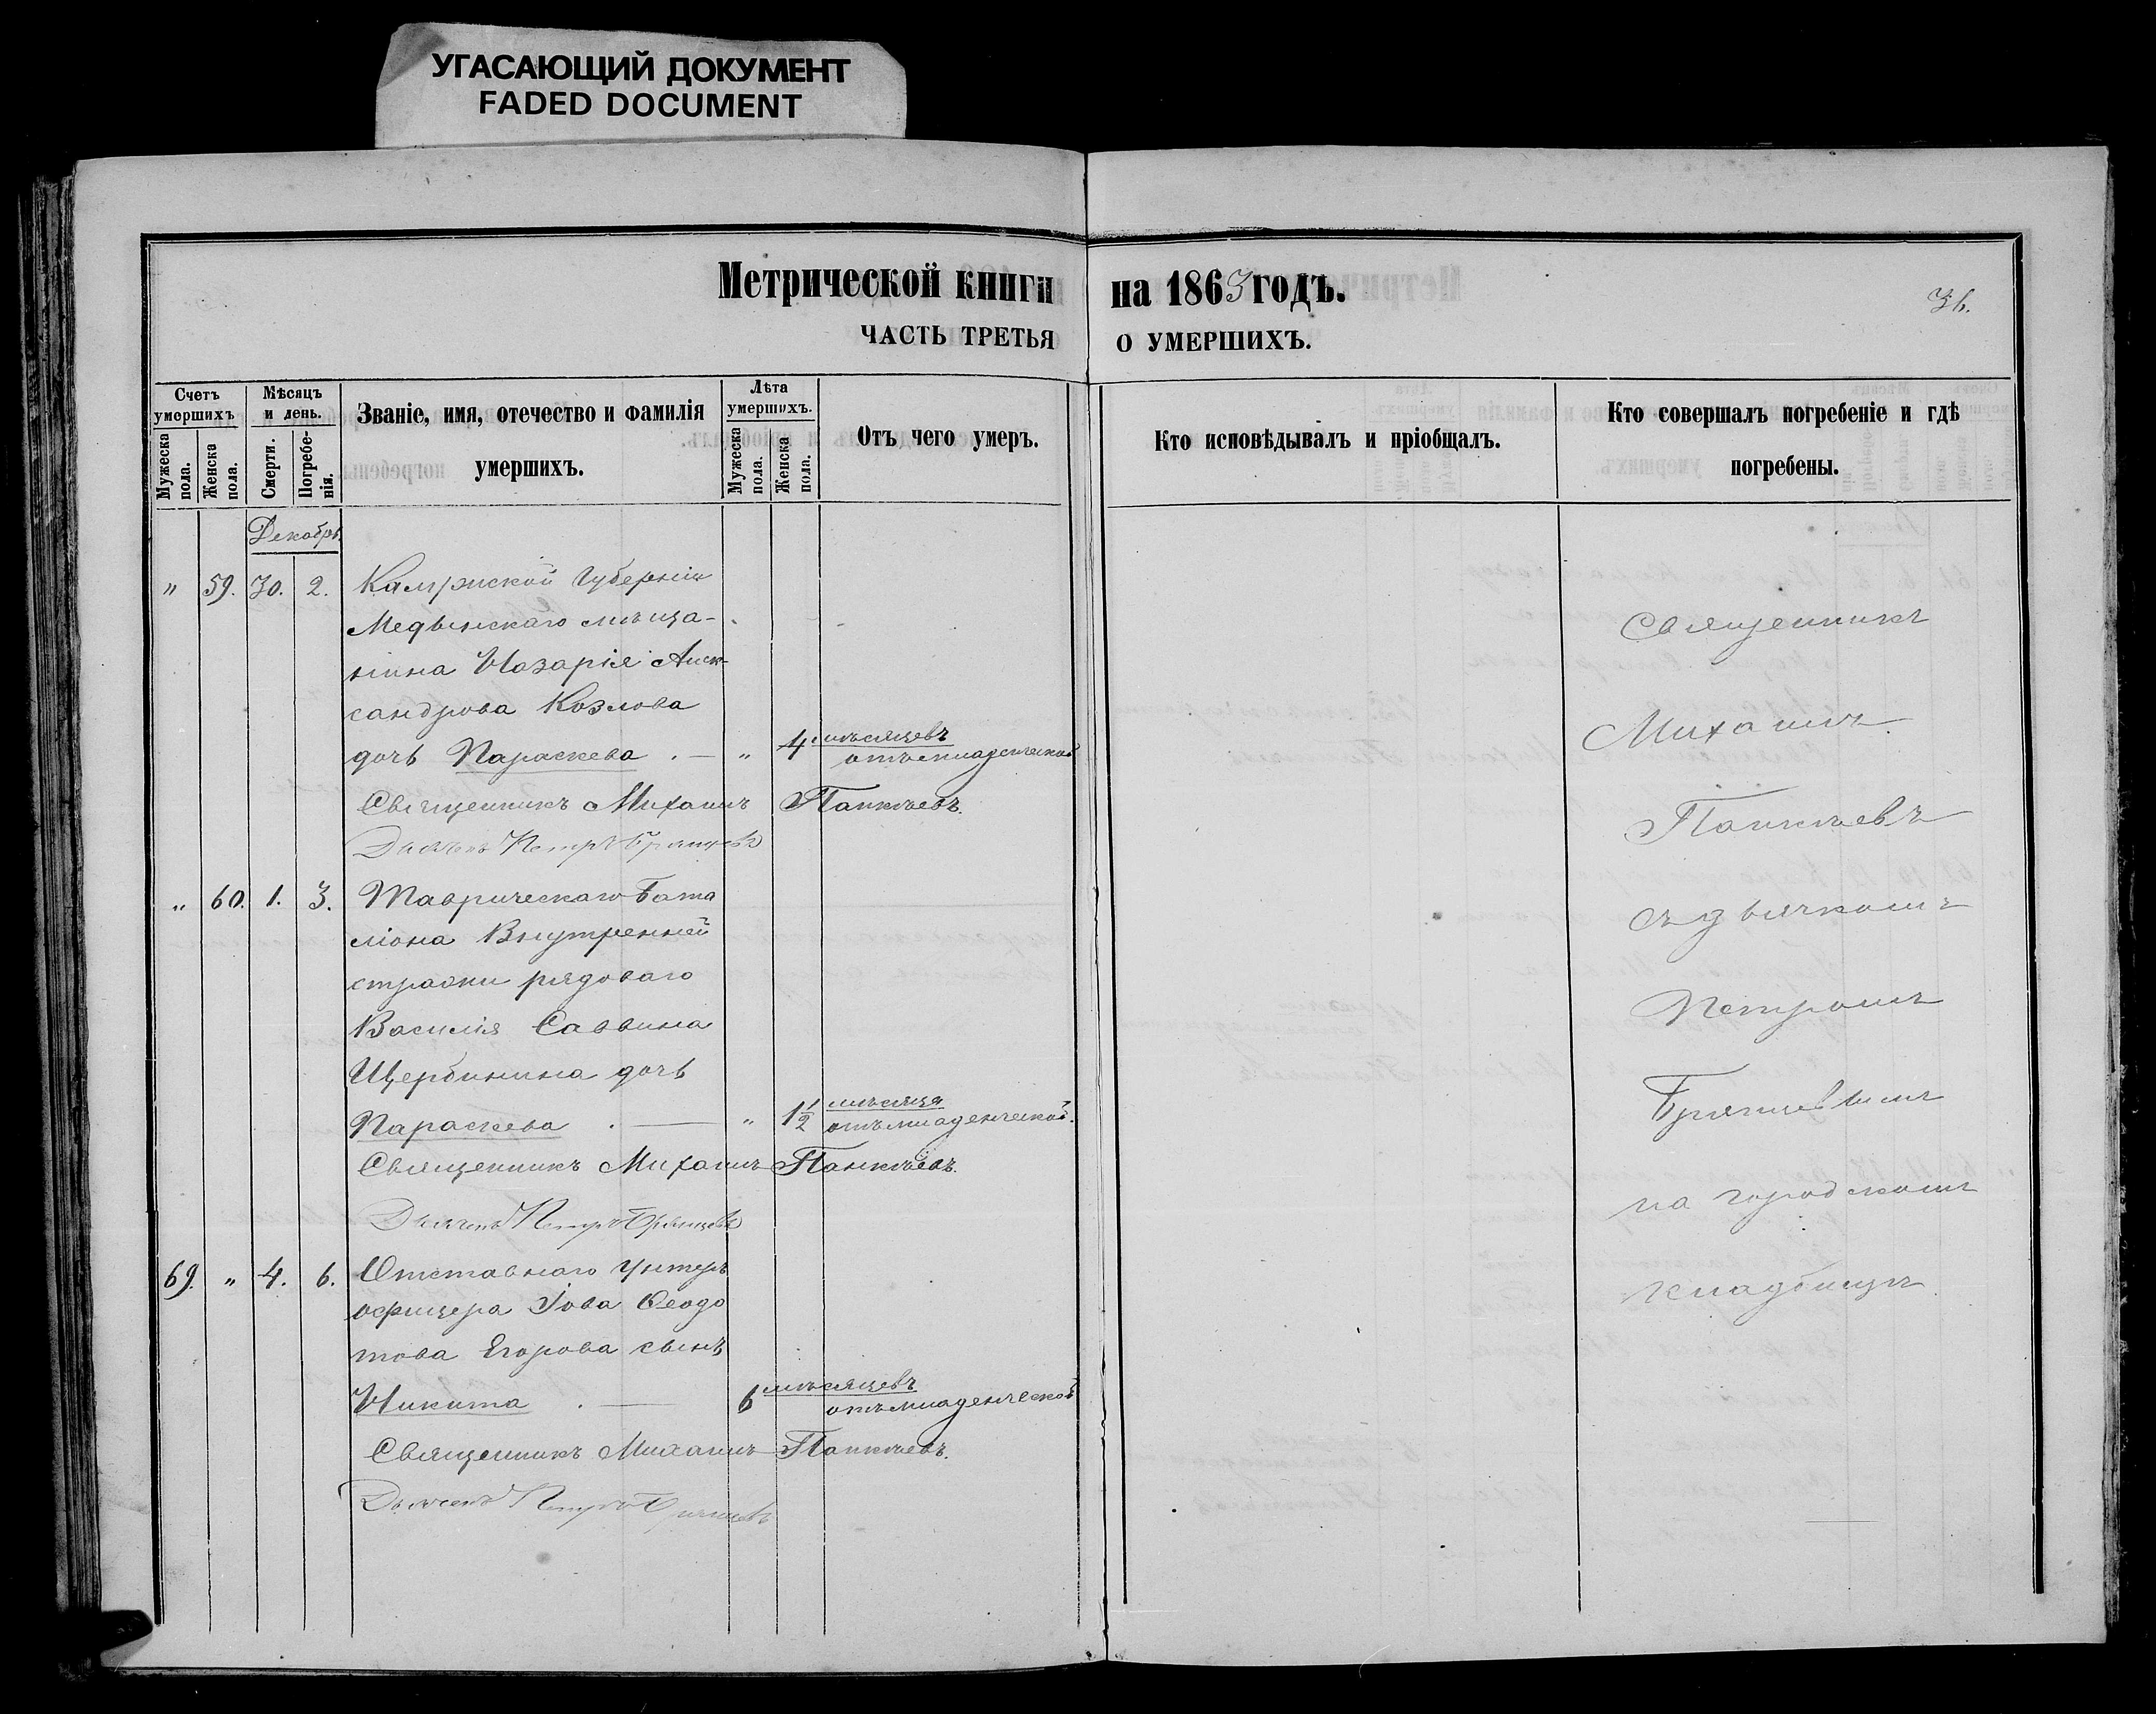 УГАСАЮЩИЙ ДОКУМЕНТ
FADED DOCUMENT
Метрической книги на 1863 годъ.
36.
ЧАСТЬ ТРЕТЬЯ О УМЕРШИХЪ.
Счетъ умершихъ
Мужеска пола.
Женска пола.
Мѣсяцъ и день.
Смерти.
Погребенія.
Званіе, имя, отечество и фамилія умершихъ.
Лѣта умершихъ.
Мужеска пола.
Женска пола.
Отъ чего умеръ.
Кто исповѣдывалъ и пріобщалъ.
Кто совершалъ погребеніе и гдѣ погребены.
Декабрь.
" 59. 30. 2. Калужской Губерніи
Медынскаго мѣща-
нина Назарія Алек-
сандрова Козлова
дочь Параскева . — " 4 мѣсяцевъ
отъ младенческой
Священникъ Михаилъ Панкѣевъ.
Дьячекъ Петръ Брянцевъ
" 60. 1. 3. Таврическаго Бата
ліона Внутренней
стражи рядоваго
Василія Саввина
Щербинина дочь
Параскева . — " 1½ мѣсяца
отъ младенческой.
Священникъ Михаилъ Панкѣевъ.
Дьячекъ Петръ Брянцевъ
69. " 4. 6. Отставнаго унтеръ
офицера Іова Ѳеодо
това Егорова сынъ
Никита . — 6 мѣсяцевъ
отъ младенческой
Священникъ Михаилъ Панкѣевъ.
Дьячекъ Петръ Брянцевъ
Священникъ
Михаилъ
Панкѣевъ
съ дьячкомъ
Петромъ
Брянцевымъ
на городскомъ
кладбищѣ.